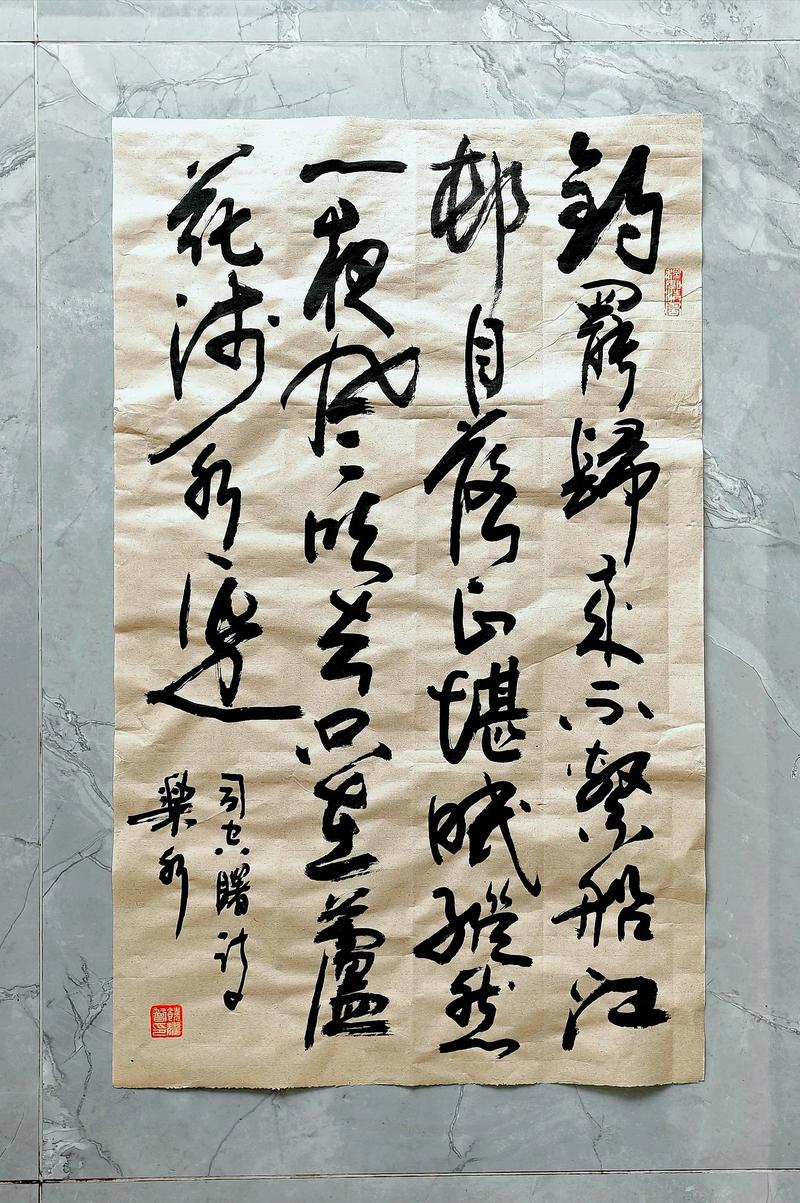 釣罷歸來不繫船江
邨月落正堪眠縱然
一夜風吹去只在蘆
花淺水邊
司空曙詩
樂水